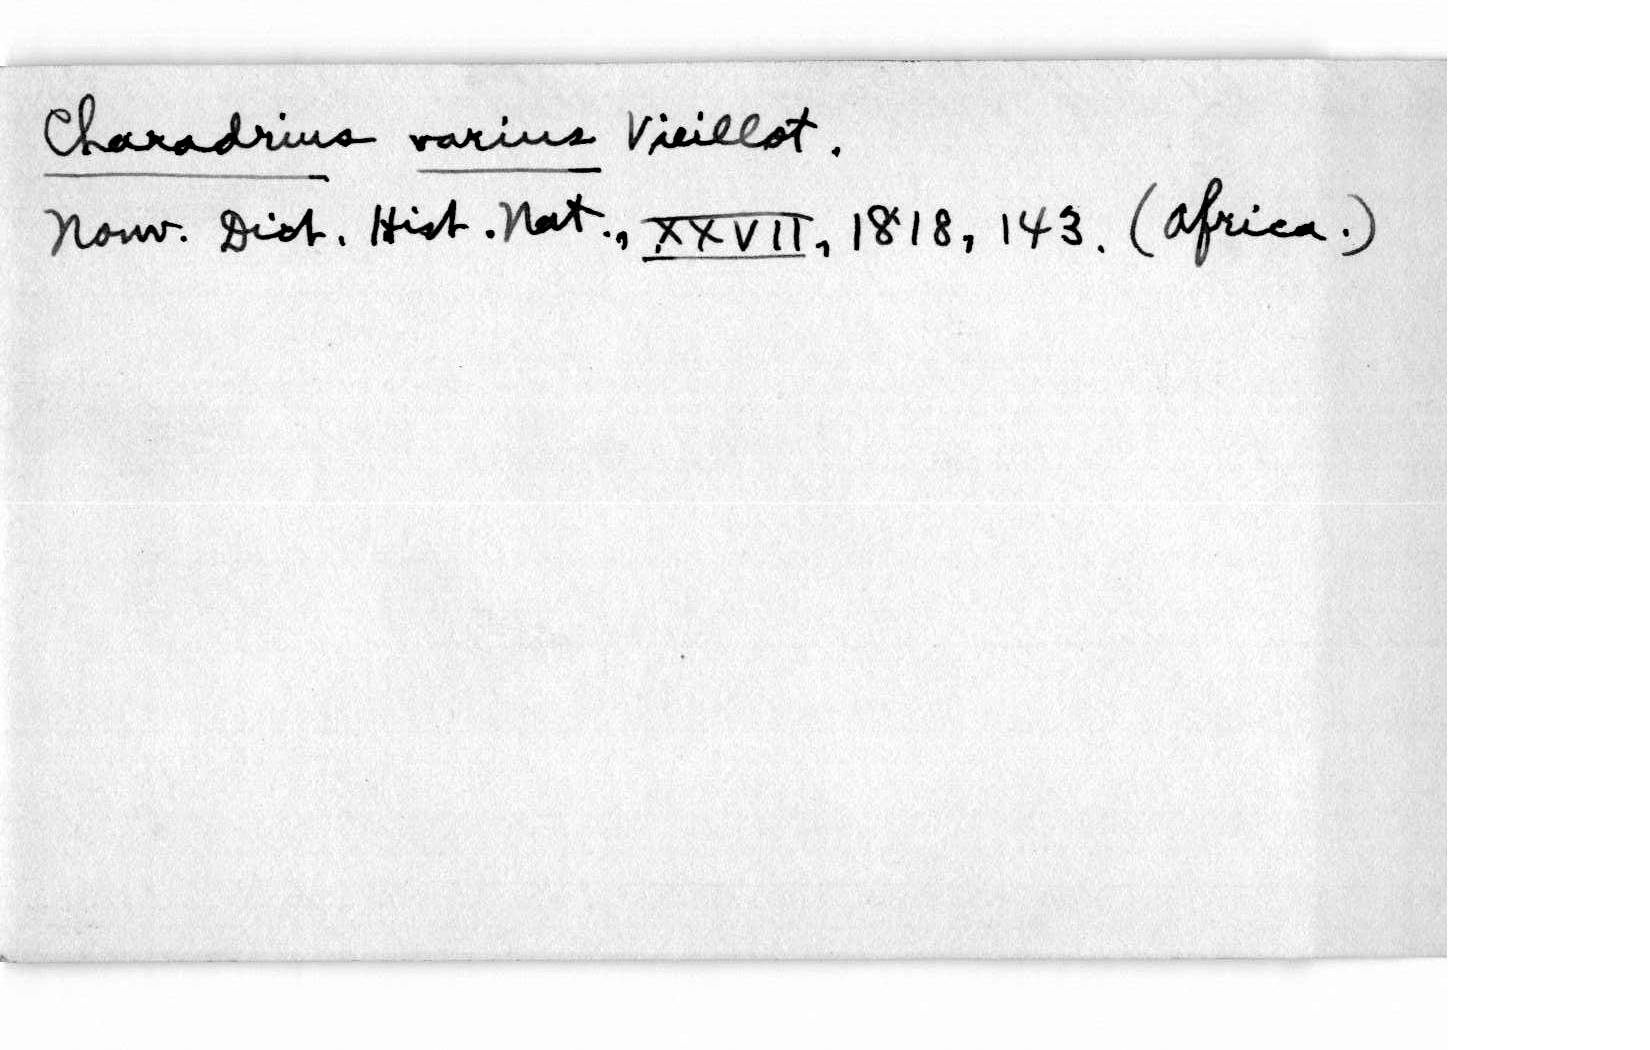 Charadrius varius Vieillot.
Nouv. Dict. Hist. Nat., XXVII, 1818, 143. (Africa.)